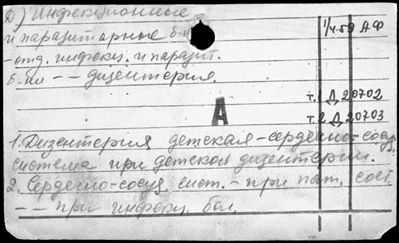 Д) Инфекционные
и паразитарные б-ни
1/4-59 АФ
-отд. инфекц. и паразит.
б-ни -- дизентерия
А
т.1 Д 20702
т.2 Д 20703
1. Дизентерия детская-сердечно-сосуд.
система при детской дизентерии.
2. Сердечно-сосуд. сист. - при пат. сост.
-- при инфекц. бол.